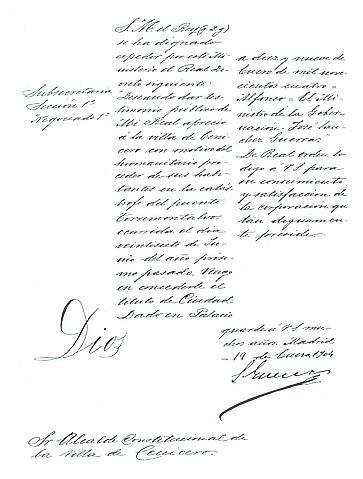 Subsecretaria
Sección 1ª
Negociado 1º
S. M. el Rey (q. D. g.)
se ha dignado
expedir por este Mi-
nisterio el Real De-
creto siguiente:
"Deseando dar tes-
timonio público de
Mi Real aprecio
á la villa de Ceni-
cero con motivo del
humanitario pro-
ceder de sus habi-
tantes en la catás-
trofe del puente
Torremontalvo,
ocurrida el dia
veintisiete de Ju-
nio del año próxi-
mo pasado, Vengo
en concederle el
titulo de Ciudad.
Dado en Palacio
a diez y nueve de
Enero de mil nove-
cientos cuatro =
Alfonso = El Mi-
nistro de la Gober-
nacion, José San-
chez Guerra."
De Real orden lo
digo á V.S. para
su conocimiento
y satisfaccion de
la corporación que
tan dignamente
preside.
Dios
guarde á V.S. mu-
chos años. Madrid
- 19 de Enero, 1904
S Guerra
Sr Alcalde Constitucional de
la villa de Cenicero.